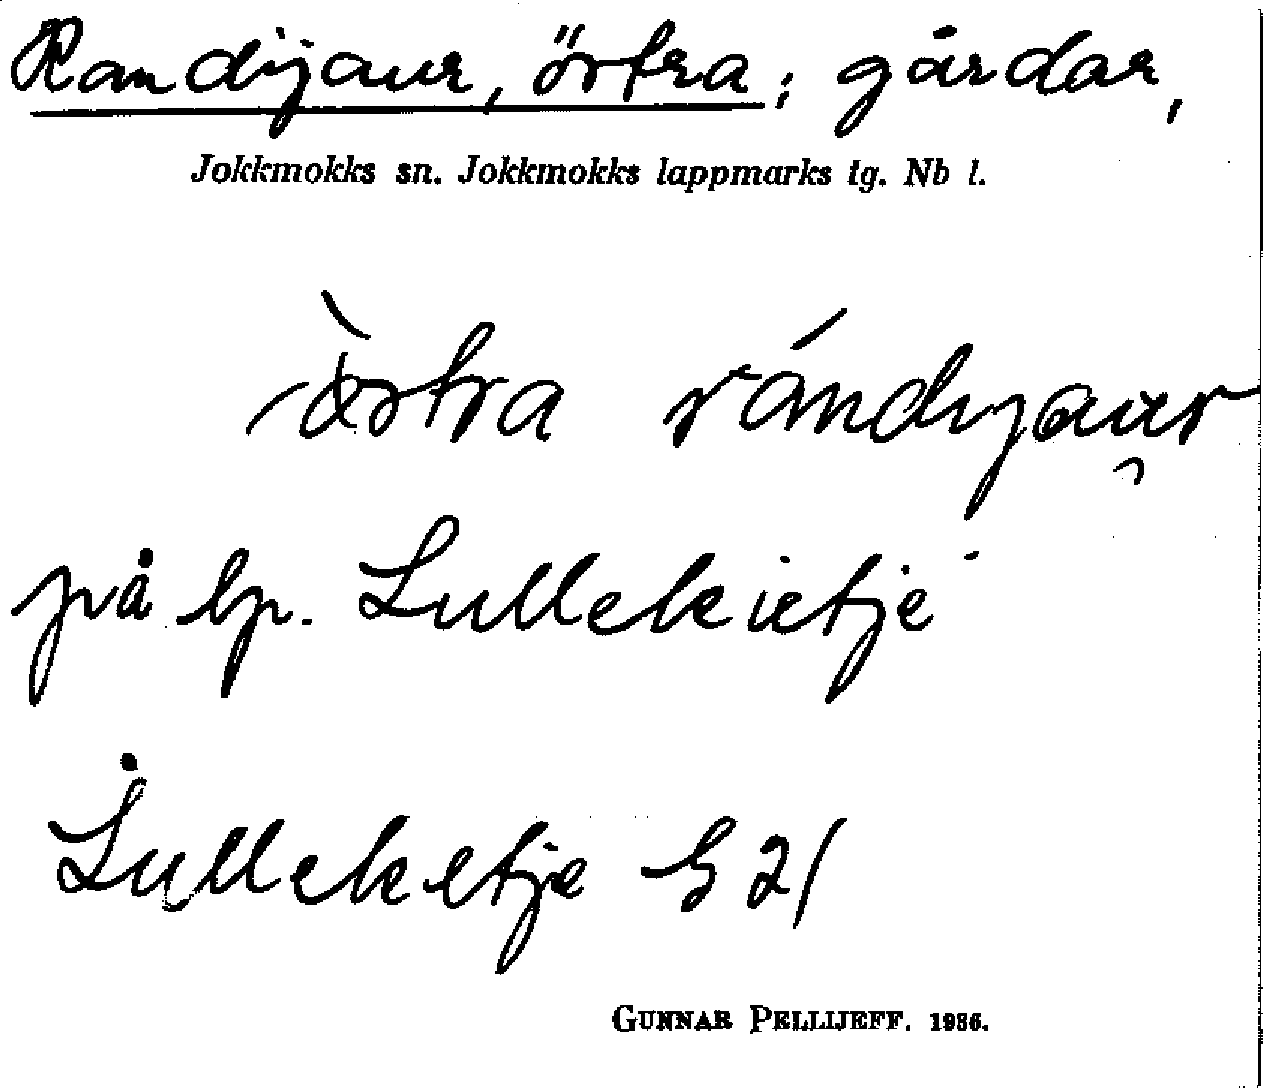 Randijaur, östra; gårdar,
Jokkmokks sn. Jokkmokks lappmarks tg. Nb l.
östra rándijaur
på lp. Lullekietje
Lulleketje
GUNNAR PELLIJEFF. 1936.